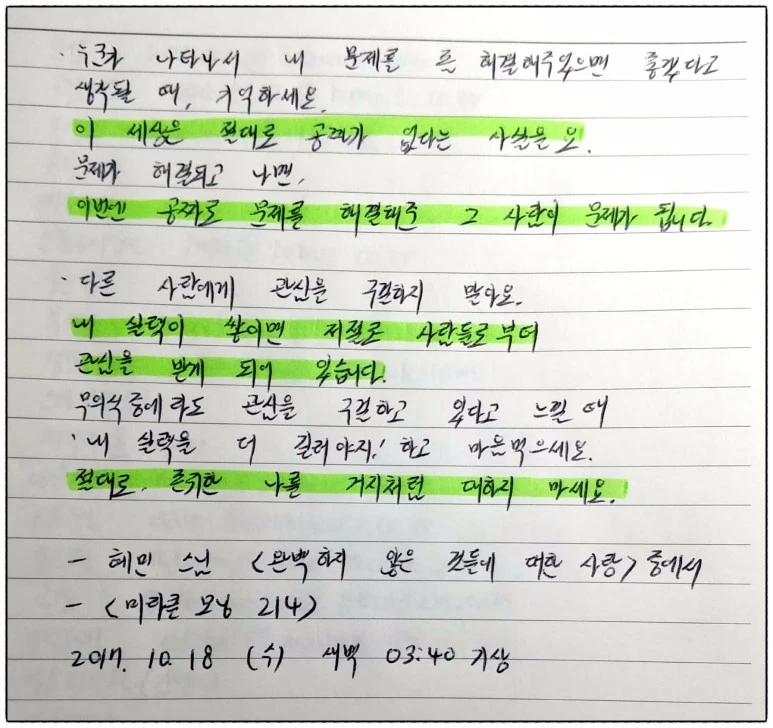 · 누군가 나타나서 내 문제를 좀 해결해주었으면 좋겠다고
생각될 때, 기억하세요.
이 세상은 절대로 공짜가 없다는 사실을요.
문제가 해결되고 나면,
이번엔 공짜로 문제를 해결해준 그 사람이 문제가 됩니다.
· 다른 사람에게 관심을 구걸하지 말아요.
내 실력이 쌓이면 저절로 사람들로부터
관심을 받게 되어 있습니다!
무의식중에라도 관심을 구걸하고 있다고 느낄 때
'내 실력을 더 길러야지!' 하고 마음먹으세요.
절대로, 존귀한 나를 거지처럼 대하지 마세요.
- 혜민 스님 <완벽하지 않은 것들에 대한 사랑> 중에서
- <미라클 모닝 214>
2017. 10. 18 (수) 새벽 03:40 기상